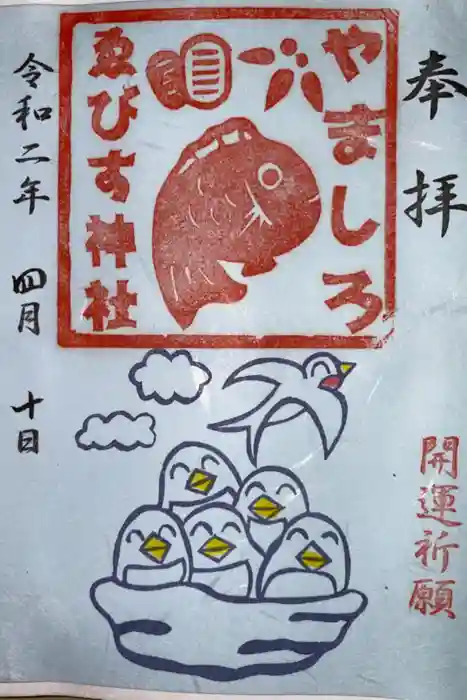 奉拝
開運祈願
やましろ
ゑびす神社
令和二年 四月 十日